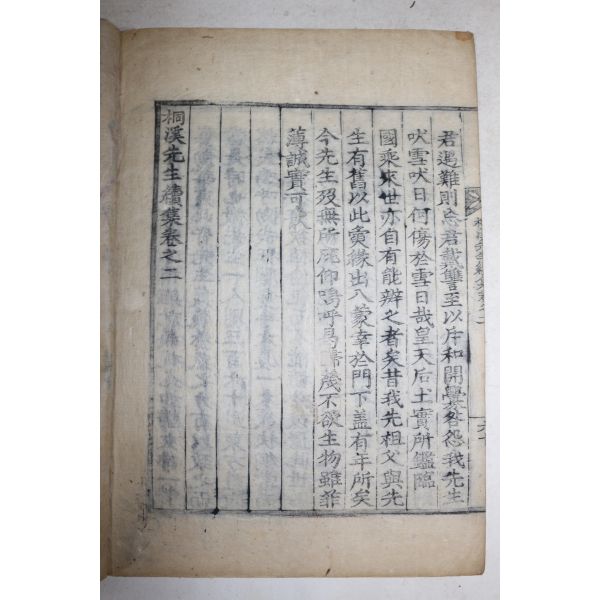 君遇難則忘君戴讐至以斥和開釁咎怨我先生
吠雪吠日何傷於雪日哉皇天后土實所鑑臨
國乘來世亦自有能辨之者矣昔我先祖父與先
生有舊以此夤緣出入蒙幸於門下盖有年所矣
今先生歿無所庇仰嗚呼曷歸蔑不欲生物雖菲
薄誠實可
桐溪先生續集卷之二